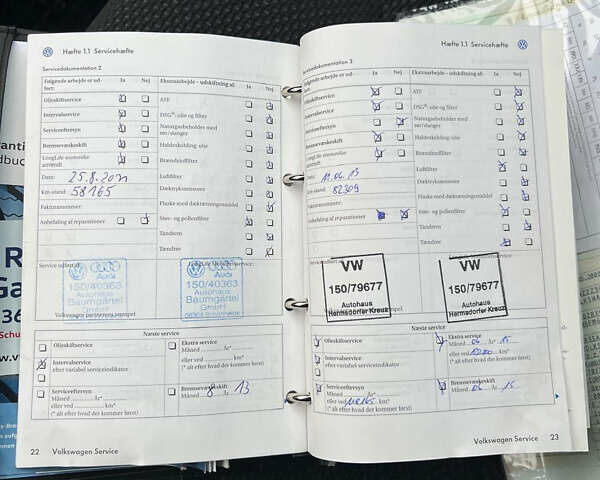 Hæfte 1.1 Servicehæfte
Servicedokumentation 2
Følgende arbejde er ud-
ført:
Ja Nej
Ekstraarbejde - udskiftning af:
Ja Nej
Olieskiftservice
ATF
Intervalservice
DSG®-olie og filter
Serviceeftersyn
Naturgasbeholder med
rør/slanger
Bremsevæskeskift
Haldexkobling: olie
LongLife-motorolie
anvendt
Brændstoffilter
Dato: 25.8.2011
Luftfilter
Km-stand: 58165
Dæktryksensorer
Fakturanummer:
Flaske med dæktætningsmiddel
Anbefaling af reparationer
Støv- og pollenfilter
Tændrør
Tandrem
Service udført af:
Audi
150/40363
Autohaus
Baumgärtel
GmbH
Audi
150/40363
Autohaus
Baumgärtel
GmbH
Næste service
Olieskiftservice
Ekstra service
Måned ........ År ........ *
eller ved ........ km*
(* alt efter hvad der kommer først)
Intervalservice
efter variabel serviceindikator
Serviceeftersyn
Måned ........ År ........ *
eller ved ........ km*
(* alt efter hvad der kommer først)
Bremsevæskeskift
Måned 8 År 13
22 Volkswagen Service
Hæfte 1.1 Servicehæfte
Servicedokumentation 3
Følgende arbejde er ud-
ført:
Ja Nej
Ekstraarbejde - udskiftning af:
Ja Nej
Olieskiftservice
ATF
Intervalservice
DSG®-olie og filter
Serviceeftersyn
Naturgasbeholder med
rør/slanger
Bremsevæskeskift
Haldexkobling: olie
LongLife-motorolie
anvendt
Brændstoffilter
Dato: 11.04.13
Luftfilter
Km-stand: 82309
Dæktryksensorer
Fakturanummer:
Flaske med dæktætningsmiddel
Anbefaling af reparationer
Støv- og pollenfilter
Tændrør
Tandrem
VW
150/79677
Autohaus
Hermsdorfer Kreuz
VW
150/79677
Autohaus
Hermsdorfer Kreuz
Næste service
Olieskiftservice
Ekstra service
Måned 04 År 15
eller ved km*
(* alt efter hvad der kommer først)
Intervalservice
efter variabel serviceindikator
Serviceeftersyn
Måned ........ År ........ *
eller ved km*
(* alt efter hvad der kommer først)
Bremsevæskeskift
Måned 04 År 15
Volkswagen Service 23